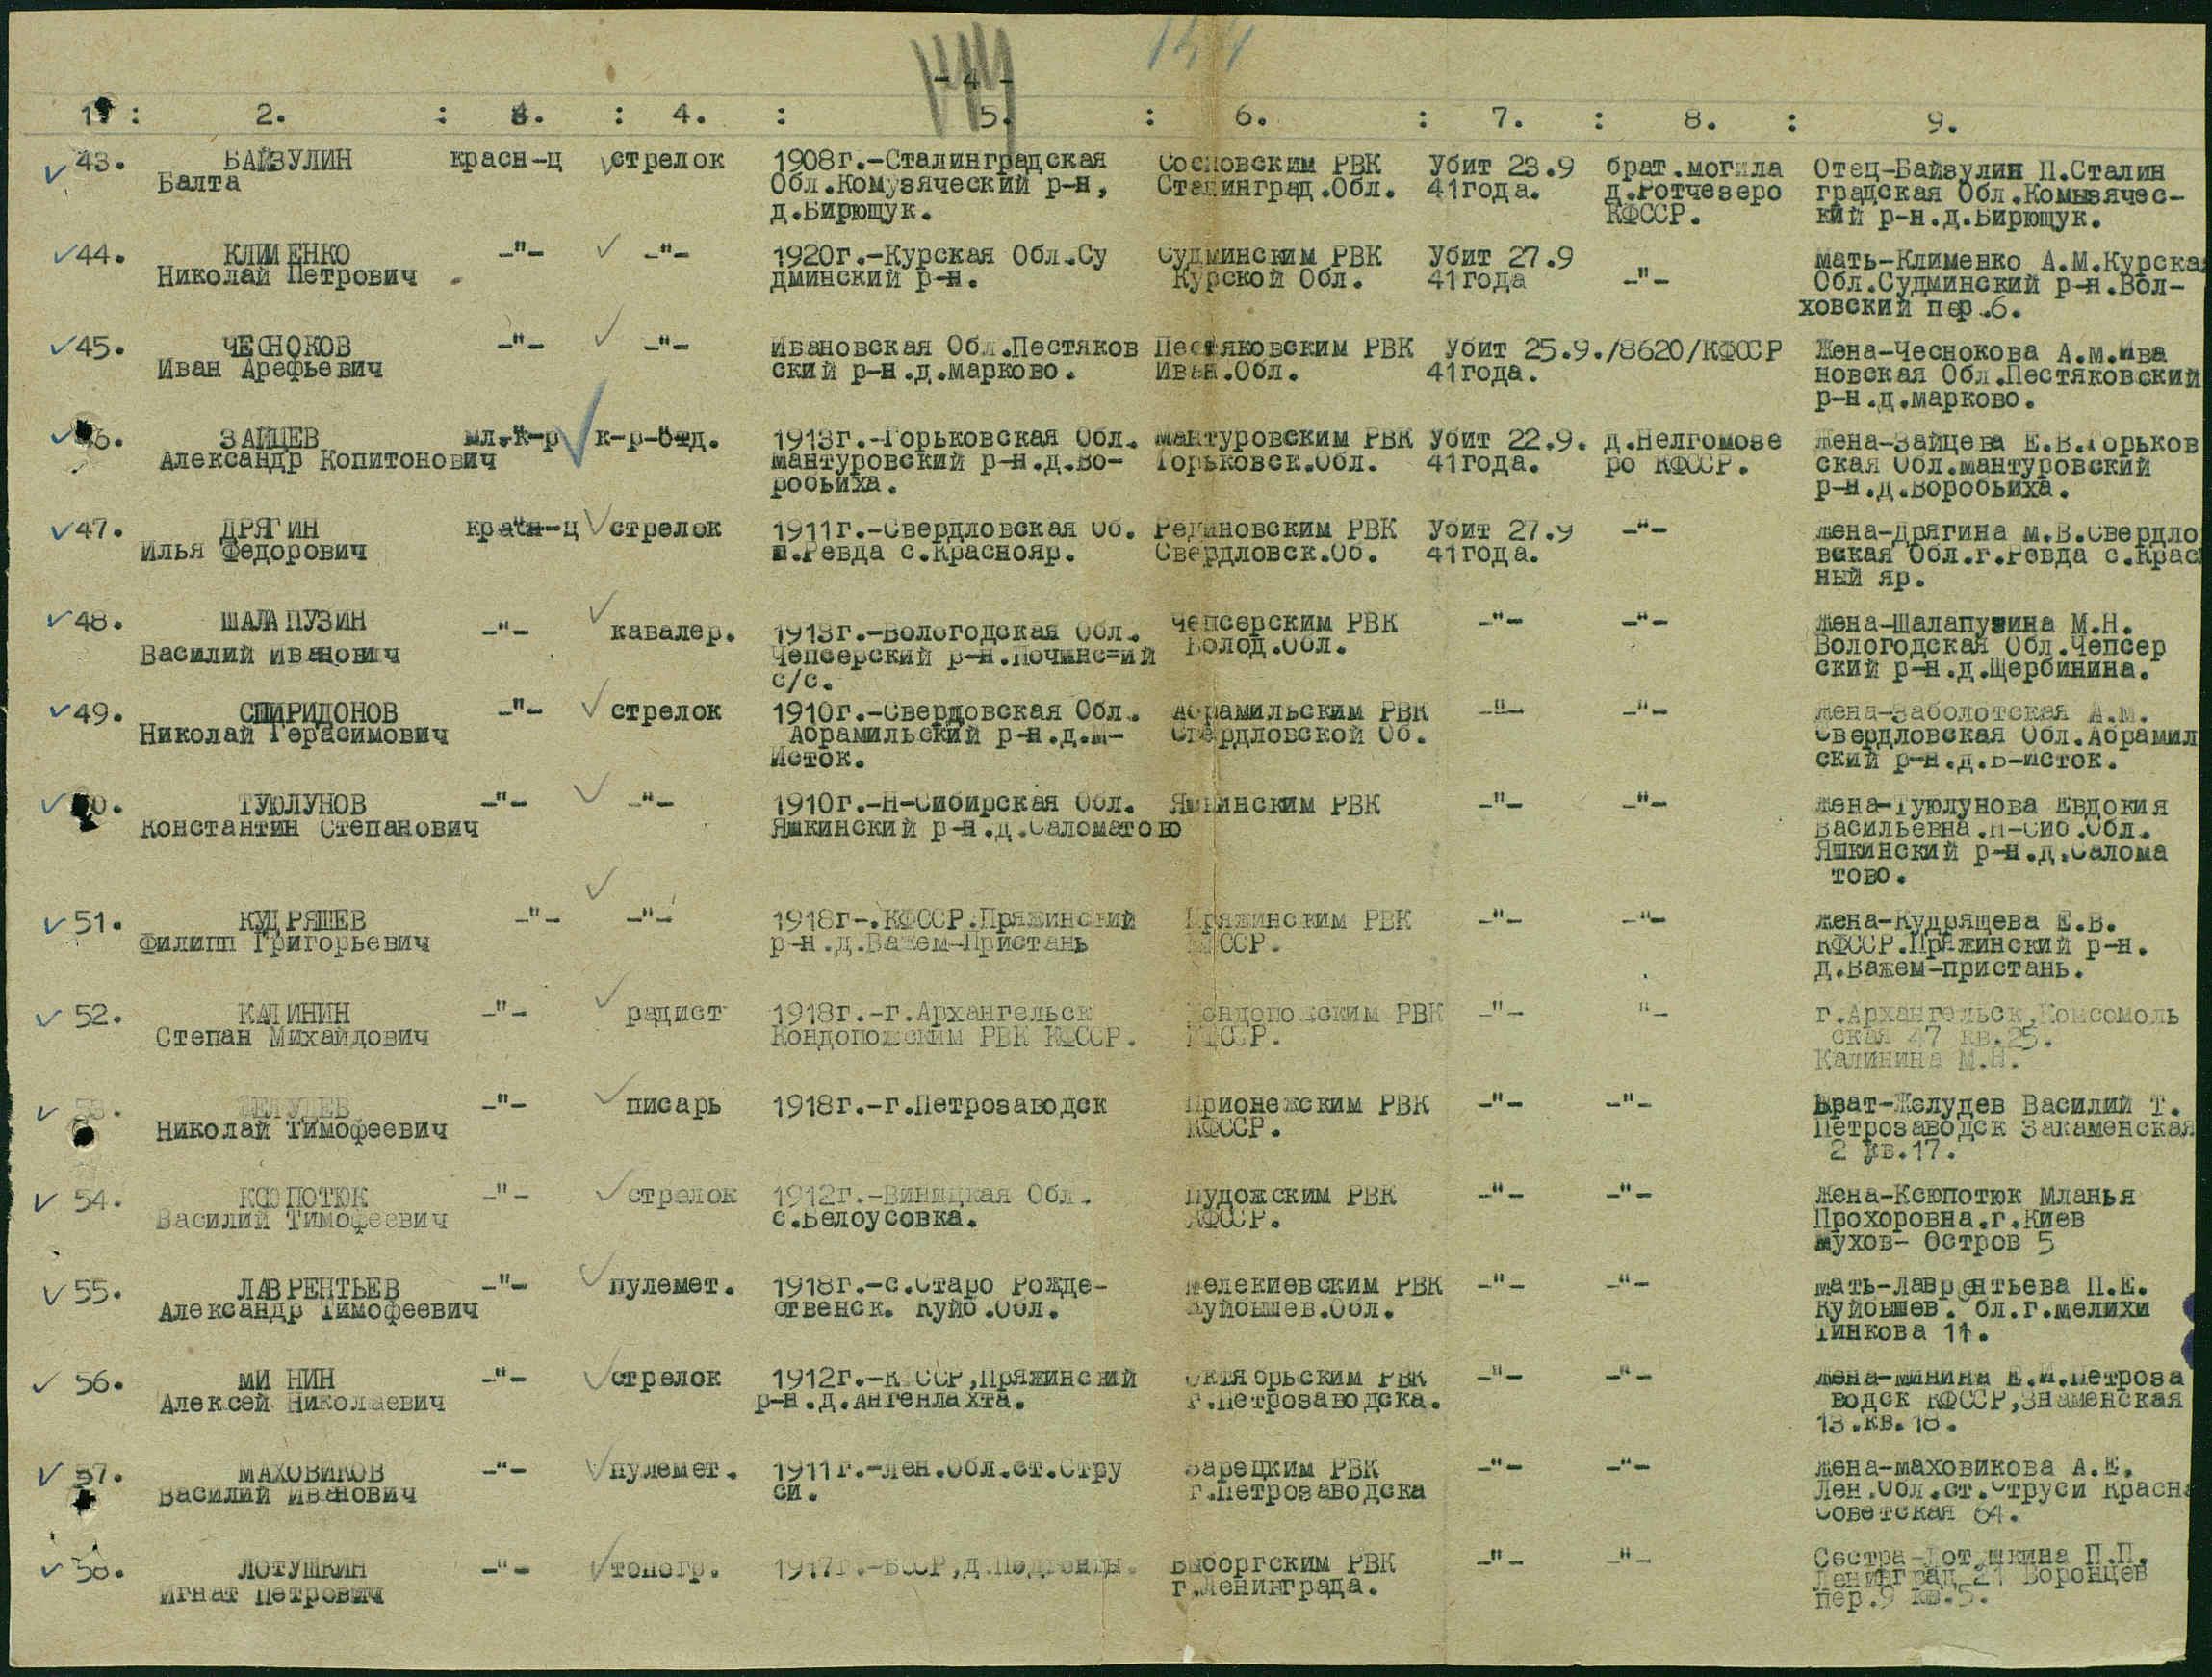 154
- 4 -
1 : 2. : 3. : 4. : 5. : 6. : 7. : 8. : 9.
43. БАЙЗУЛИН красн-ц стрелок 1908г.-Сталинградская Сосновским РВК Убит 23.9 брат.могила Отец-Байзулин П.Сталин
Балта Обл.Комузяческий р-н, Сталинград.Обл. 41года. д.Ротчезеро градская Обл.Комызячес-
д.Бирющук. КФССР. кий р-н.д.Бирющук.
44. КЛИМЕНКО -"- -"- 1920г.-Курская Обл.Су Судминским РВК Убит 27.9 Мать-Клименко А.М.Курская
Николай Петрович дминский р-н. Курской Обл. 41года -"- Обл.Судминский р-н.Вол-
ховский пер.6.
45. ЧЕСНОКОВ -"- -"- Ивановская Обл.Пестяков Пестяковским РВК Убит 25.9./8620/КФССР Жена-Чеснокова А.М.Ива
Иван Арефьевич ский р-н.д.Марково. Иван.Обл. 41года. новская Обл.Пестяковский
р-н.д.Марково.
46. ЗАЙЦЕВ мл.к-р к-р-Отд. 1913г.-Горьковская Обл. Мантуровским РВК Убит 22.9. д.Нелгомозе Жена-Зайцева Е.В.Горьков
Александр Копитонович Мантуровский р-н.д.Во- Горьковск.Обл. 41года. ро КФССР. ская Обл.Мантуровский
робьиха. р-н.д.Воробьиха.
47. ДРЯГИН красн-ц стрелок 1911г.-Свердловская Об. РВК Убит 27.9 -"- Жена-Дрягина М.В.Свердло
Илья Федорович г.Ревда с.Краснояр. Свердловск.Об. 41года. вская Обл.г.Ревда с.Крас
ный яр.
48. ШАЛАПУЗИН -"- кавалер. 1913г.-Вологодская Обл. Чепсерским РВК -"- -"- Жена-Шалапузина М.Н.
Василий Иванович Чепсерский р-н.Почине=ий Волод.Обл. Вологодская Обл.Чепсер
с/с. ский р-н.д.Щербинина.
49. СПИРИДОНОВ -"- стрелок 1910г.-Свердовская Обл. Абрамильским РВК -"- -"- Жена-Заболотская А.М.
Николай Герасимович Абрамильский р-н.д. Свердловской Об. Свердловская Обл.Абрамил
Исток. ский р-н.д.Б-Исток.
50. ТУЮЛУНОВ -"- -"- 1910г.-Н-Сибирская Обл. Яшкинским РВК -"- -"- Жена-Туюлунова Евдокия
Константин Степанович Яшкинский р-н.д.Саломатово Васильевна.Н-Сиб.Обл.
Яшкинский р-н.д.Салома
тово.
51. КУДРЯШЕВ -"- -"- 1918г-.КФССР.Пряжинский Пряжинским РВК -"- -"- Жена-Кудряшева Е.В.
Филипп Григорьевич р-н.д.Важем-Пристань КФССР. КФССР.Пряжинский р-н.
д.Важем-пристань.
52. КАЛИНИН -"- радист 1918г.-г.Архангельск Кондопожским РВК -"- "- г.Архангельск,Комсомоль
Степан Михайдович Кондопожским РВК КФССР. КФССР. ская 47 кв.25.
Калинина М.Н.
53. ЖЕЛУДЕВ -"- писарь 1918г.-г.Петрозаводск Прионежским РВК -"- -"- Брат-Желудев Василий Т.
Николай Тимофеевич КФССР. Петрозаводск Закаменская
2 кв.17.
54. КСЮПОТЮК -"- стрелок 1912г.-Виницкая Обл. Пудожским РВК -"- -"- Жена-Ксюпотюк Мланья
Василий Тимофеевич с.Белоусовка. КФССР. Прохоровна.г.Киев
Мухов- Остров 5
55. ЛАВРЕНТЬЕВ -"- пулемет. 1918г.-с.Старо Рожде- Мелекиевским РВК -"- -"- Мать-Лаврентьева П.Е.
Александр Тимофеевич ственск. Куйб.Обл. Куйбышев.Обл. Куйбышев. бл.г.Мелихи
Тинкова 11.
56. МИНИН -"- стрелок 1912г.-К ССР,Пряжинский Октяорьским РВК -"- -"- Жена-Минина Е.И.Петроза
Алексей Николаевич р-н.д.Ангенлахта. г.Петрозаводска. водск КФССР,Знаменская
13.кв.18.
57. МАХОВИКОВ -"- пулемет. 1911г.-Лен.Обл.ст.Стру Зарецким РВК -"- -"- Жена-Маховикова А.Е.
Василий Иванович си. г.Петрозаводска Лен.Обл.ст.Струси Красна
Советская 64.
58. ЛОТУШКИН -"- топогр. 1917г.-БССР,д. Выборгским РВК -"- -"- Сестра-Лотушкина П.П.
Игнат Петрович г.Ленинграда. Ленинград 21 Воронцев
пер.9 кв.5.